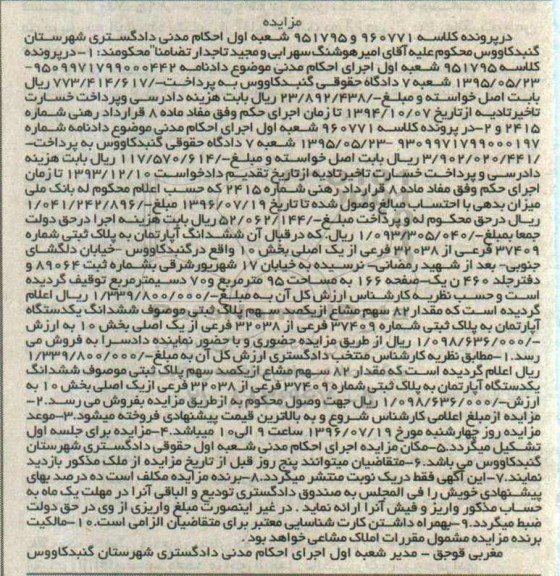 مزایده
درپرونده کلاسه ۹۶۰۷۷۱ و ۹۵۱۷۹۵ شعبه اول احکام مدنی دادگستری شهرستان
گنبدکاووس محکوم علیه آقای امیرهوشنگ سهرابی و مجید تاجدار تضامنا" محکومند: ۱- درپرونده
کلاسه ۹۵۱۷۹۵ شعبه اول اجرای احکام مدنی موضوع دادنامه ۹۵۰۹۹۷۱۷۹۹۰۰۰۴۴۲-
۱۳۹۵/۰۵/۲۳ شعبه ۷ دادگاه حقوقی گنبدکاووس به پرداخت-/۷۷۳/۴۱۴/۶۱۷ ریال
بابت اصل خواسته و مبلغ-/۲۳/۸۹۲/۴۳۸ ریال بابت هزینه دادرسی وپرداخت خسارت
تاخیرتادیه ازتاریخ ۱۳۹۴/۱۰/۰۷ تا زمان اجرای حکم وفق مفاد ماده ۸ قرارداد رهنی شماره
۲۴۱۵ و ۲-در پرونده کلاسه ۹۶۰۷۷۱ شعبه اول اجرای احکام مدنی موضوع دادنامه شماره
۹۳۰۹۹۷۱۷۹۹۰۰۰۱۹۷ -۱۳۹۵/۰۵/۲۳ شعبه ۷ دادگاه حقوقی گنبدکاووس به پرداخت-
/۳/۹۰۲/۰۲۰/۴۴۱ ریال بابت اصل خواسته و مبلغ-/۱۱۷/۵۷۰/۶۱۴ ریال بابت هزینه
دادرسی و پرداخت خسارت تاخیرتادیه ازتاریخ تقدیم دادخواست ۱۳۹۳/۱۲/۱۰ تا زمان
اجرای حکم وفق مفاد ماده ۸ قرارداد رهنی شماره ۲۴۱۵ که حسب اعلام محکوم له بانک ملی
میزان بدهی با احتساب مبالغ وصول شده تا تاریخ ۱۳۹۶/۰۷/۱۹ مبلغ-/۱/۰۴۱/۲۴۲/۸۹۶
ریال درحق محکوم له و پرداخت مبلغ-/۵۲/۰۶۲/۱۴۴ ریال بابت هزینه اجرا درحق دولت
جمعا بمبلغ-/۱/۰۹۳/۳۰۵/۰۴۰ ریال. که درقبال آن ششدانگ آپارتمان به پلاک ثبتی شماره
۳۷۴۰۹ فرعی از ۳۲۰۳۸ فرعی از یک اصلی بخش ۱۰ واقع درگنبدکاووس -خیابان دلگشای
جنوبی- بعد از شهید رمضانی- نرسیده به خیابان ۱۷ شهریورشرقی بشماره ثبت ۸۹۰۶۴ و
دفترجلد ۴۶۰ ن یک-صفحه ۱۶۶ به مساحت ۹۵ مترمربع و۷۰ دسیمترمربع توقیف گردیده
است و حسب نظریه کارشناس ارزش کل آن به مبلغ-/۱/۳۳۹/۸۰۰/۰۰۰ ریال اعلام
گردیده است که مقدار ۸۲ سهم مشاع ازیکصد سهم پلاک ثبتی موصوف ششدانگ یکدستگاه
آپارتمان به پلاک ثبتی شماره ۳۷۴۰۹ فرعی از ۳۲۰۳۸ فرعی از یک اصلی بخش ۱۰ به ارزش
-/۱/۰۹۸/۶۳۶/۰۰۰ ریال از طریق مزایده حضوری و با حضور نماینده دادسرا به فروش می
رسد. ۱-مطابق نظریه کارشناس منتخب دادگستری ارزش کل آن به مبلغ-/۱/۳۳۹/۸۰۰/۰۰۰
ریال اعلام گردیده است که مقدار ۸۲ سهم مشاع ازیکصد سهم پلاک ثبتی موصوف ششدانگ
یکدستگاه آپارتمان به پلاک ثبتی شماره ۳۷۴۰۹ فرعی از ۳۲۰۳۸ فرعی ازیک اصلی بخش ۱۰ به
ارزش-/۱/۰۹۸/۶۳۶/۰۰۰ ریال جهت وصول محکوم به ازطریق مزایده بفروش می رسد. ۲-
مزایده ازمبلغ اعلامی کارشناس شروع و به بالاترین قیمت پیشنهادی فروخته میشود.۳-موعد
مزایده روز چهارشنبه مورخ ۱۳۹۶/۰۷/۱۹ ساعت ۹ الی۱۰ میباشد.۴-مزایده برای جلسه اول
تشکیل میگردد.۵-مکان مزایده اجرای احکام مدنی شعبه اول حقوقی دادگستری شهرستان
گنبدکاووس می باشد.۶-متقاضیان میتوانند پنج روز قبل از تاریخ مزایده از ملک مذکور بازدید
نمایند.۷-این آگهی فقط دریک نوبت منتشر میگردد.۸-برنده مزایده مکلف است ده درصد بهای
پیشنهادی خویش را فی المجلس به صندوق دادگستری تودیع و الباقی آنرا در مهلت یک ماه به
حساب مذکور واریز و فیش آنرا ارائه نماید . در غیر اینصورت مبلغ واریزی از وی در حق دولت
ضبط میگردد.۹-بهمراه داشتن کارت شناسایی معتبر برای متقاضیان الزامی است.۱۰-مالکیت
برنده مزایده مشمول مقررات املاک مشاعی خواهد بود .
مغربی قوجق - مدیر شعبه اول اجرای احکام مدنی دادگستری شهرستان گنبدکاووس